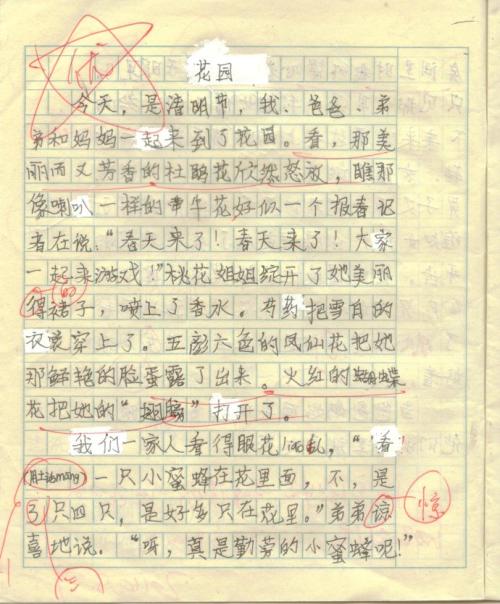 优
花园
今天，是清明节，我、爸爸、弟
弟和妈妈一起来到了花园。看，那美
丽而又芳香的杜鹃花欣然怒放，瞧那
像喇叭一样的牵牛花好似一个报春记
者在说：“春天来了！春天来了！大家
一起来游戏！”桃花姐姐绽开了她美丽
得裙子，喷上了香水。芍药把雪白的
衣裳穿上了。五颜六色的凤仙花把她
那鲜艳的脸蛋露了出来。火红的蝴蝶
花把她的“翅膀”打开了。
我们一家人看得眼花 乱，“看
一只小蜜蜂在花里面，不，是
只四只，是好多只在花里。”弟弟谅
喜地说。“呀，真是勤劳的小蜜蜂呢！”
的
惊